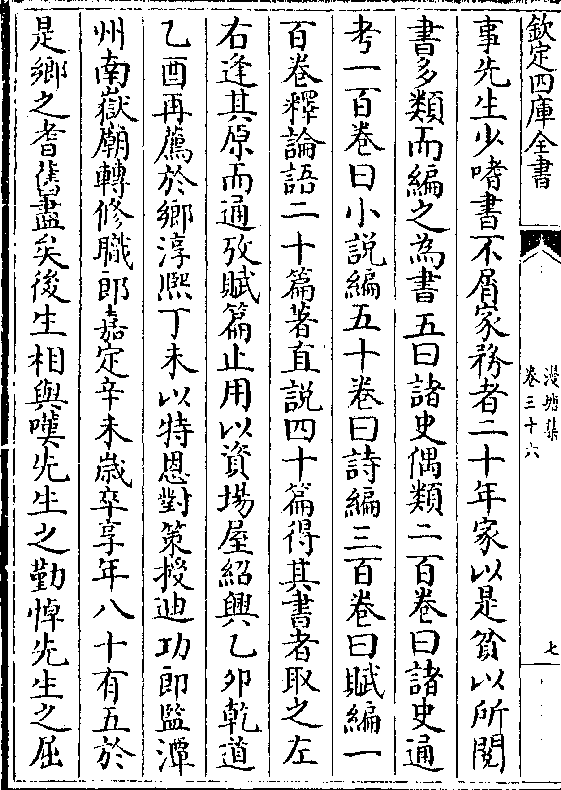 欽定四庫全書
漫塘集
卷三十六
七
事先生少嗜書不屑家務者二十年家以是貧以所閱
書多類而編之為書五曰諸史偶類二百卷曰諸史通
考一百卷曰小説編五十卷曰詩編三百卷曰賦編一
百卷釋論語二十篇著直説四十篇得其書者取之左
右逢其原而通攷賦篇止用以資場屋紹興乙卯乾道
乙酉再薦於鄉淳熙丁未以特恩對策授迪功郎監潭
州南嶽廟轉修職郎嘉定辛未歲卒享年八十有五於
是鄉之耆舊盡矣後生相與嘆先生之勤悼先生之屈